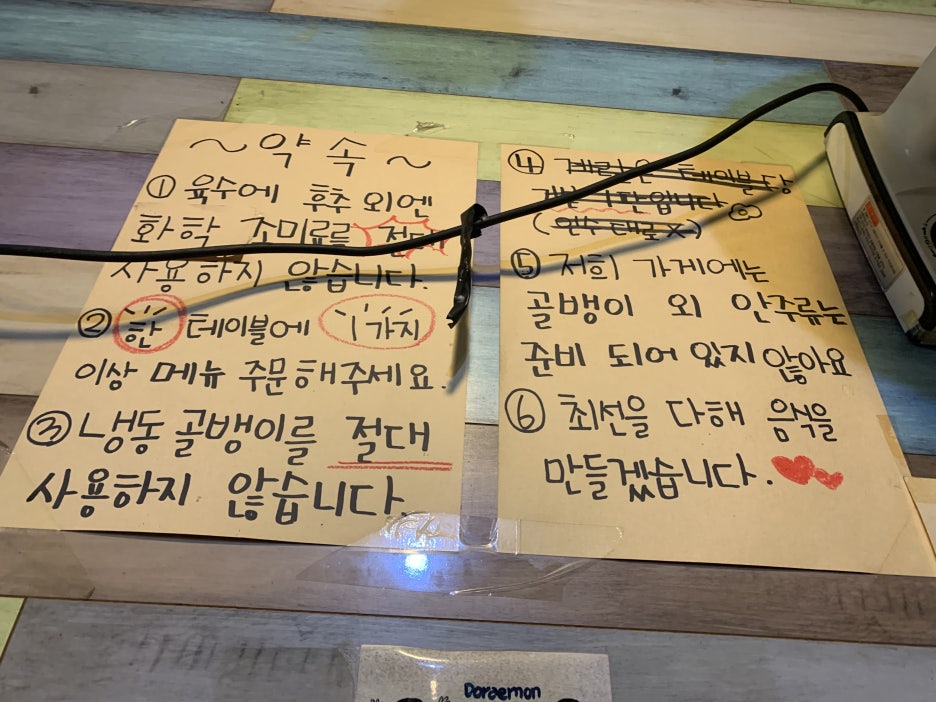 ~약속~
① 육수에 후추 외엔
화학 조미료를 절대
사용하지 않습니다.
② 한 테이블에 1가지
이상 메뉴 주문해주세요.
③ 냉동 골뱅이를 절대
사용하지 않습니다.
④ 계란은 테이블당
한판입니다
(인수대로X)
⑤ 저희 가게에는
골뱅이 외 안주류는
준비 되어 있지 않아요
⑥ 최선을 다해 음식을
만들겠습니다.
Doraemon